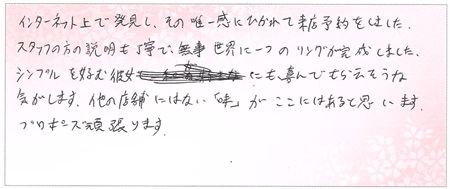 インターネット上で発見し、その唯一感にひかれて来店予約をしました。
スタッフの方の説明も丁寧で、無事世界に一つのリングが完成しました。
シンプルを好む彼女にも喜んでもらえそうな
気がします。他の店舗にはない「味」がここにはあると思います。
プロポーズ頑張ります。